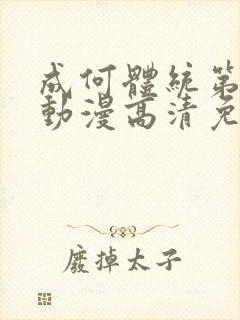 成何體統第
動漫高清免
廢掉太子